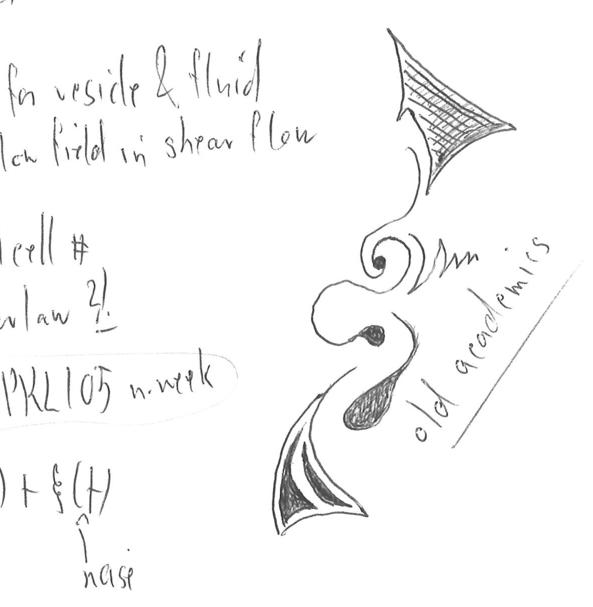 for vesicle & fluid
flow field in shear flow
cell #
law ?!
PKL105 n.week
) + ξ(t)
^
noise
old academics